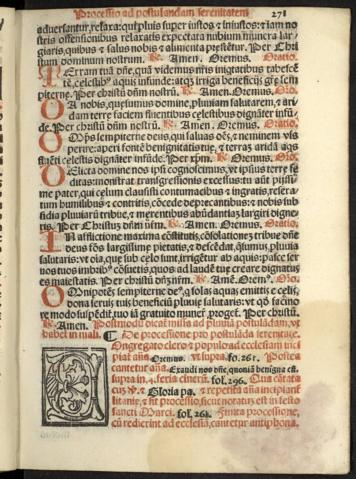 Processio ad postulandam serenitatem. 271
aduersantur, relaxa: qui pluis super iustos & iniustos: & iam no
stris offensionibus relaxatis expectata nubium munera lar
giaris, quibus & salus nobis & alimenta prestẽtur. Per Chri
stum dominum nostrum. ℟. Amen. Oremus. Oratio.
TErram tuã dñe, quã videmus nr̃is iniquitatibus tabescẽ
tẽ, celestibꝰ aquis infunde: atqꝫ irriga beneficijs grẽ sem
piterne. Per Christũ dñm nostrũ. ℟. Amen. Oremus. Oratio.
DA nobis, quesumus domine, pluuiam salutarem, & ari
dam terre faciem fluentibus celestibus dignãter infũ
de. Per christũ dñm nostrũ. ℟. Amen. Oremus. Oratio.
Ops sempiterne deus, qui saluas oẽs, & neminem vis
perire: aperi fontẽ benignitatis tue, & terraz aridã aqs
fluẽti celestis dignãter infũde. Per xp̃m. ℟. Oremus. Oro.
DElicta domine nos ipsi cognoscimus, vt ipsius terre se
ditas monstrat transgressionis excessus: tu aũt pijssi
me pater, qui celum clausisti contumacibus & ingratis, resera
tum humilibus & contritis, cõcede deprecantibus: & nobis sub
sidia pluuiarũ tribue, & merentibus abũdantiaz largiri digne
ris. Per Christũ dñm ñrm. ℟. Amen. Oremus. Oratio.
IN afflictione maxima cõstitutis, cõsolatiões tribue dñe
deus ños largissime pietatis, & descẽdat, q̃sumus, pluuia
salutaris: vt oĩa, que sub celo sunt, irrigẽtur ab aquis: pasce ser
uos tuos imbribꝰ cõsuetis, quos ad laudẽ tue creare dignatus
es maiestatis. Per christũ dñm ñrm. ℟. Amẽ. Oremꝰ. Oro.
OMnipotẽs sempiterne deꝰ, q̃ solas aquas emittis e celis,
dona terris tuis beneficiũ pluuie salutaris: vt qd̃ facino
re modo suspẽdit, tuo iã gratuito munerẽ proget. Per christũ.
℟. Amen. Postmodũ dicat missã ad pluuiã postulãdam, vt
habet in mali. ¶ De processione pro postulãda serenitate.
COngregato clero & populo ad ecclesiam inci
piat añã Oremus. vt supra. fo. 261. Postea
cantetur añã. Exaudi nos dñe, quoniã benigna est.
supra in. 4. feria cinerũ. fol. 296. Qua cãtata
cũ ℣. & Gloria pa. & repetita añã incipiant
litanie, & fit processio, sicut notatus est in festo
sancti Marci. fol. 261. Finita processione,
cũ redierint ad ecclesiã, cantetur antiphona.